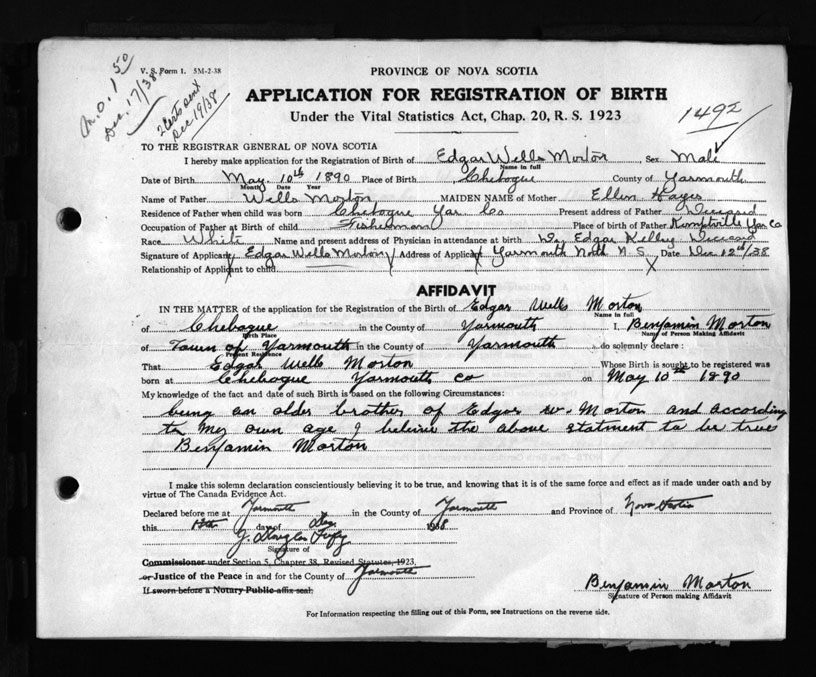 V. S. Form 1. 5M-2-38
M.O. 1 50
Dec. 17/38
2 Certs sent
Dec 19/38
PROVINCE OF NOVA SCOTIA
APPLICATION FOR REGISTRATION OF BIRTH
Under the Vital Statistics Act, Chap. 20, R. S. 1923
1492
TO THE REGISTRAR GENERAL OF NOVA SCOTIA
I hereby make application for the Registration of Birth of Edgar Wells Morton Sex Male
Name in full
Date of Birth May 10th 1890 Place of Birth Chebogue County of Yarmouth
Month Date Year
Name of Father Wells Morton MAIDEN NAME of Mother Ellen Hayes
Residence of Father when child was born Chebogue Yar. Co Present address of Father Deceased
Occupation of Father at Birth of child Fisherman Place of birth of Father Kemptville Yar Co
Race White Name and present address of Physician in attendance at birth Dr Edgar Kelley Deceased
Signature of Applicant Edgar Wells Morton Address of Applicant Yarmouth North N.S. Date Dec 12th/38
Relationship of Applicant to child
AFFIDAVIT
IN THE MATTER of the application for the Registration of the Birth of Edgar Wells Morton
Name in full
of Chebogue in the County of Yarmouth I, Benjamin Morton
Birth Place Name of Person Making Affidavit
of Town of Yarmouth in the County of Yarmouth do solemnly declare:
Present Residence
That Edgar Wells Morton Whose Birth is sought to be registered was
born at Chebogue Yarmouth Co on May 10th 1890
My knowledge of the fact and date of such Birth is based on the following Circumstances:
being an older brother of Edgar W. Morton and according
to my own age I beleive the above statment to be true
Benjamin Morton
I make this solemn declaration conscientiously believing it to be true, and knowing that it is of the same force and effect as if made under oath and by
virtue of The Canada Evidence Act.
Declared before me at Yarmouth in the County of Yarmouth and Province of Nova Scotia
this day of Dec 1938
J. Douglas
Signature of
Commissioner under Section 5, Chapter 38, Revised Statutes, 1923,
or Justice of the Peace in and for the County of Yarmouth
If sworn before a Notary Public affix seal.
Benjamin Morton
Signature of Person making Affidavit
For Information respecting the filling out of this Form, see Instructions on the reverse side.